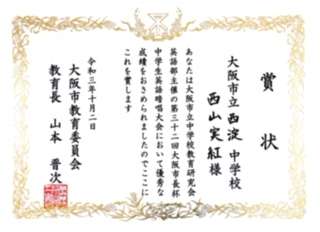 賞状
大阪市立西淀中学校
西山実紅様
あなたは大阪市立中学校教育研究会
英語部主催の第三十二回大阪市長杯
中学生英語暗唱大会において優秀な
成績をおさめられましたのでここに
これを賞します
令和三年十月二日
大阪市教育委員会
教育長 山本晋次